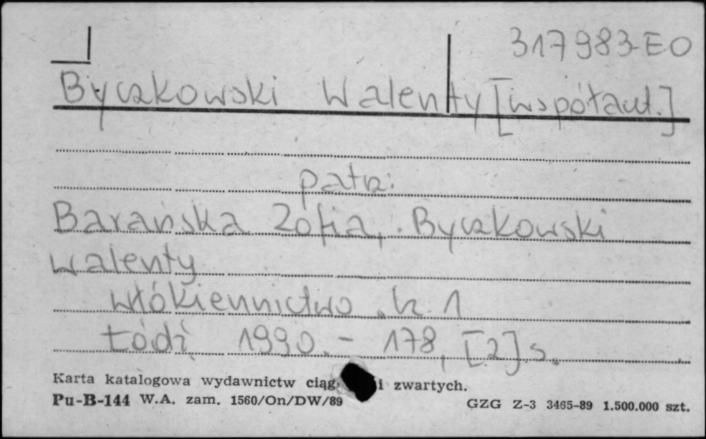 317983-EO
Byczkowski Walenty [współaut.]
patrz:
Barańska Zofia, Byczkowski
Walenty
Włókiennictwo. Cz. 1
Łódź 1990. - 178, [2] s.
Karta katalogowa wydawnictw ciąg. i zwartych.
Pu-B-144 W.A. zam. 1560/On/DW/89
GZG Z-3 3465-89 1.500.000 szt.